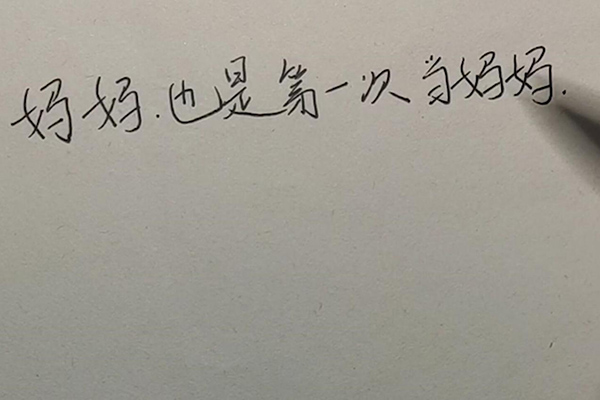 妈妈.也是第一次当妈妈.